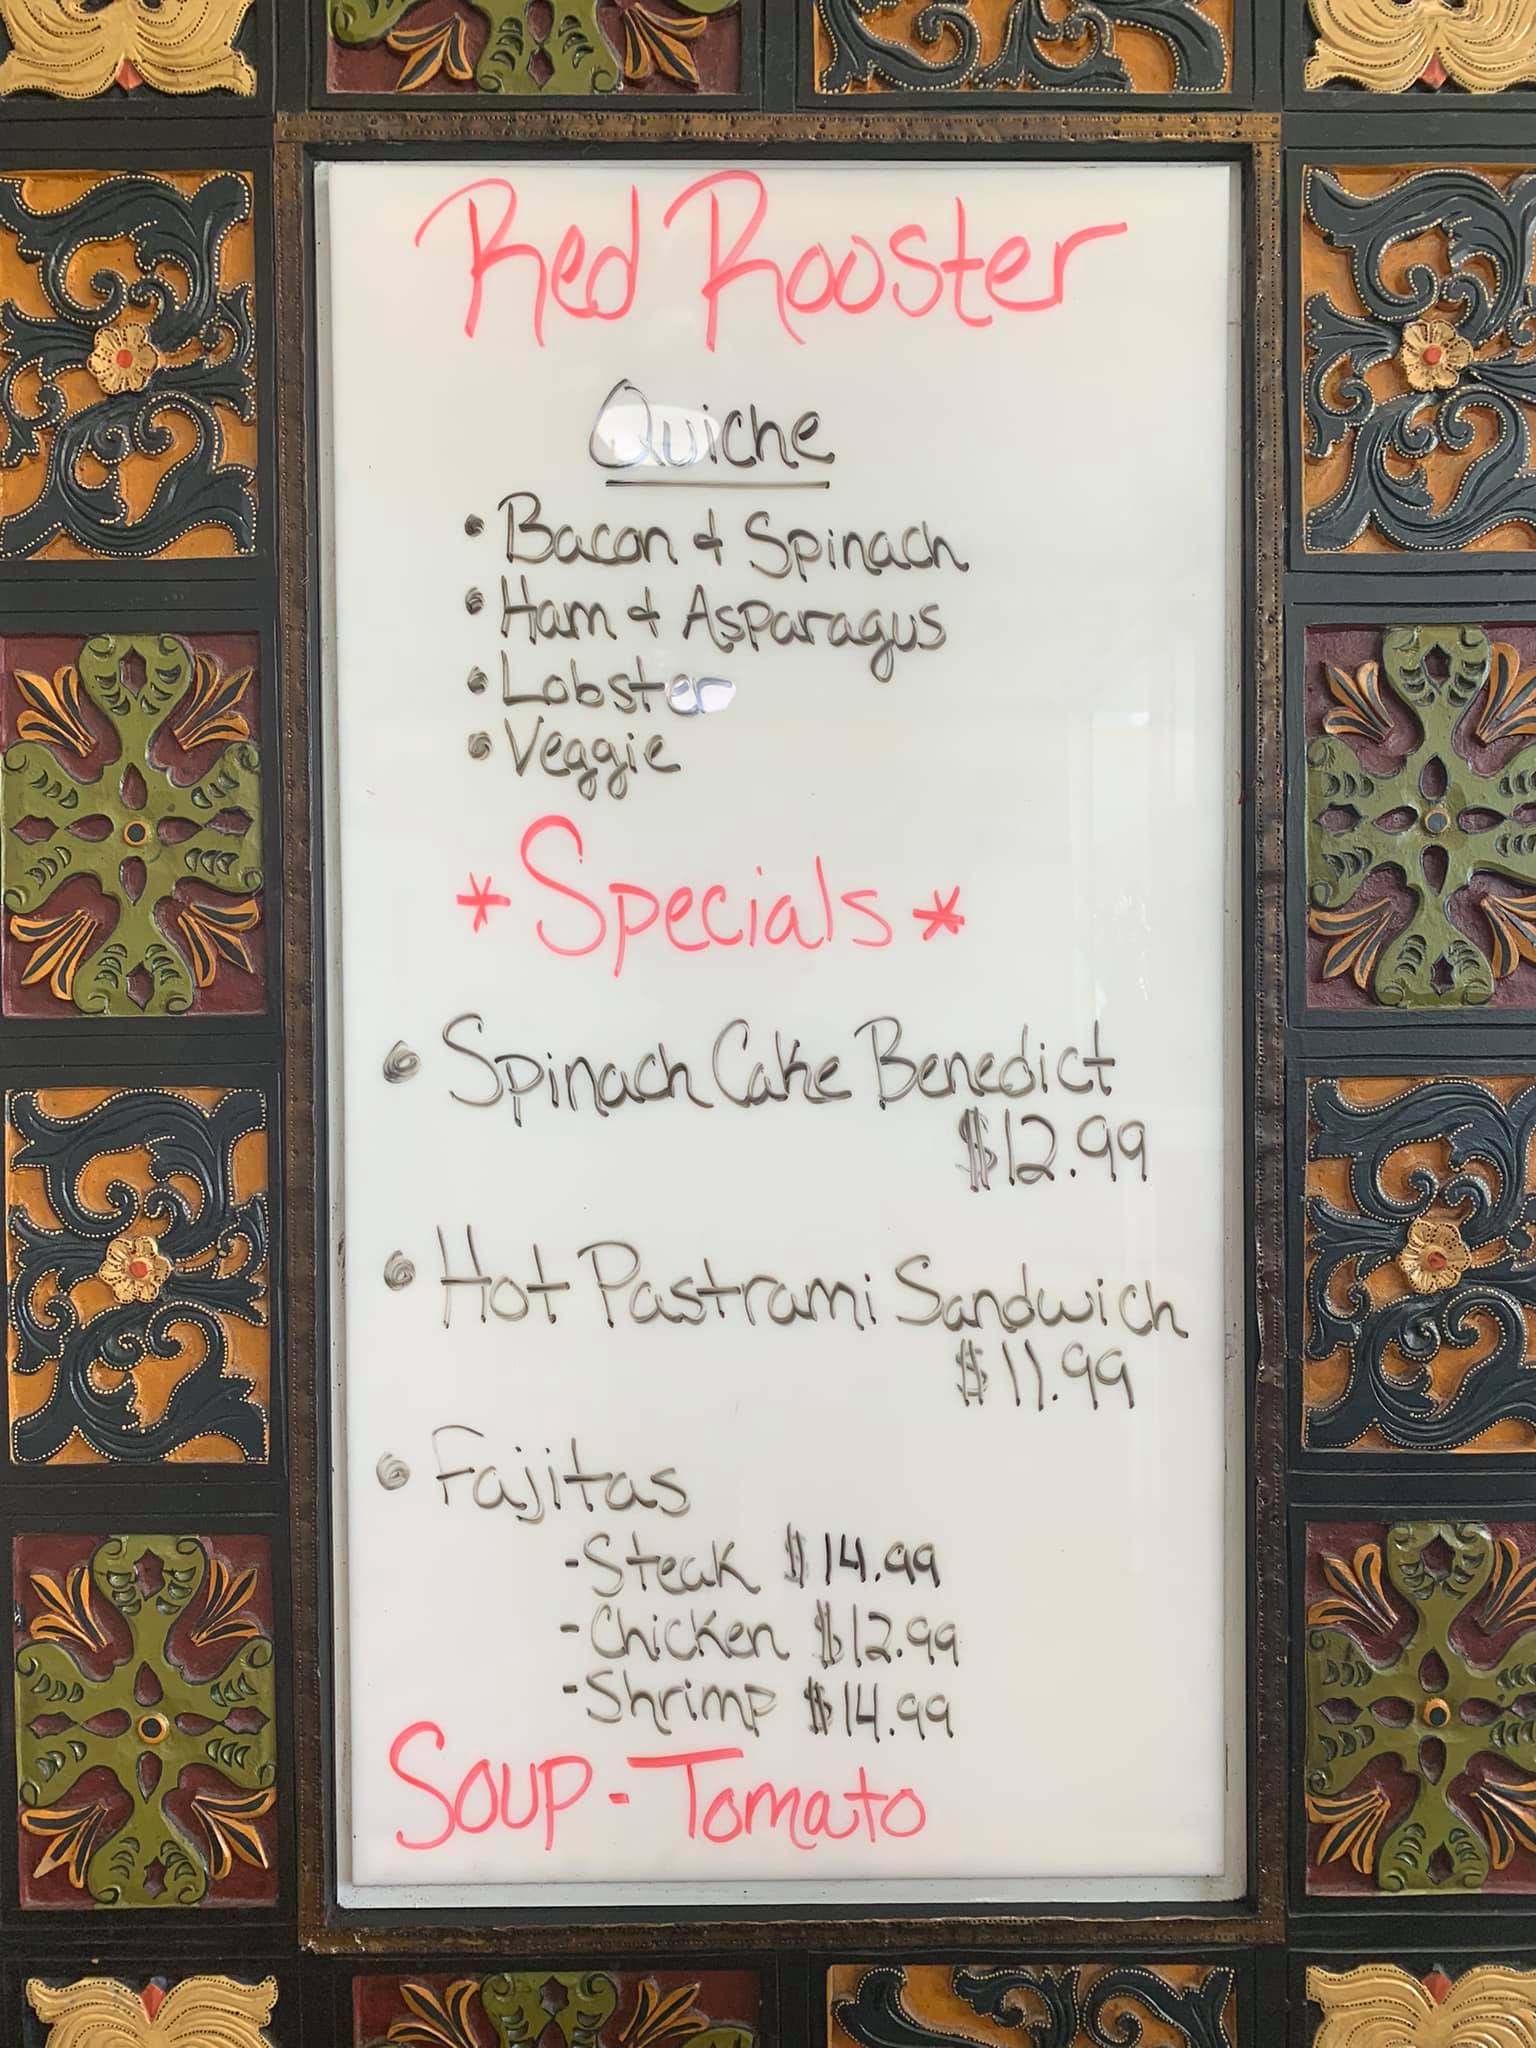 Red Rooster
Quiche
• Bacon & Spinach
• Ham & Asparagus
• Lobster
• Veggie
* Specials *
• Spinach Cake Benedict
$12.99
• Hot Pastrami Sandwich
$11.99
• Fajitas
- Steak $14.99
- Chicken $12.99
- Shrimp $14.99
Soup - Tomato